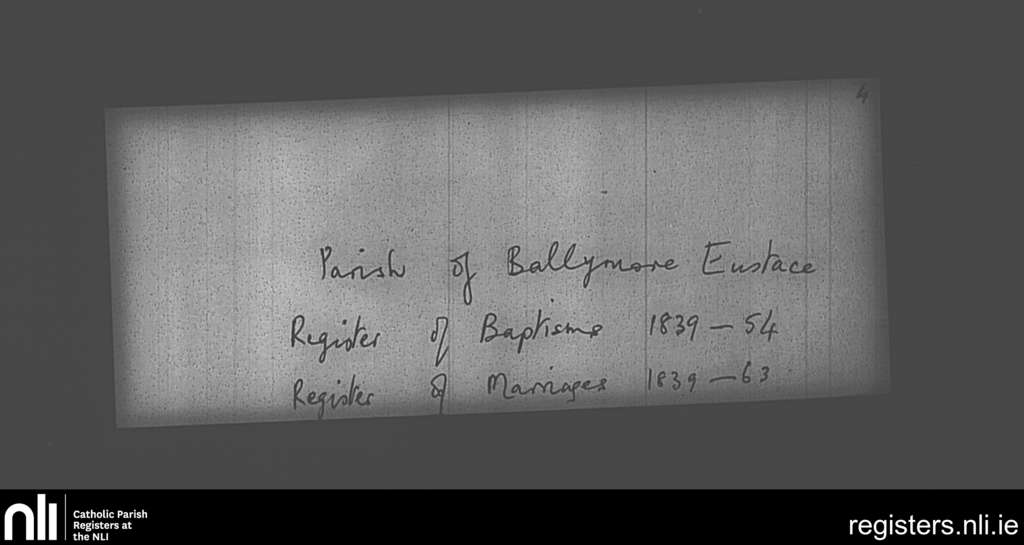 4
Parish of Ballymore Eustace
Register of Baptisms 1839 – 54
Register of Marriages 1839 – 63
nli
Catholic Parish
Registers at
the NLI
registers.nli.ie